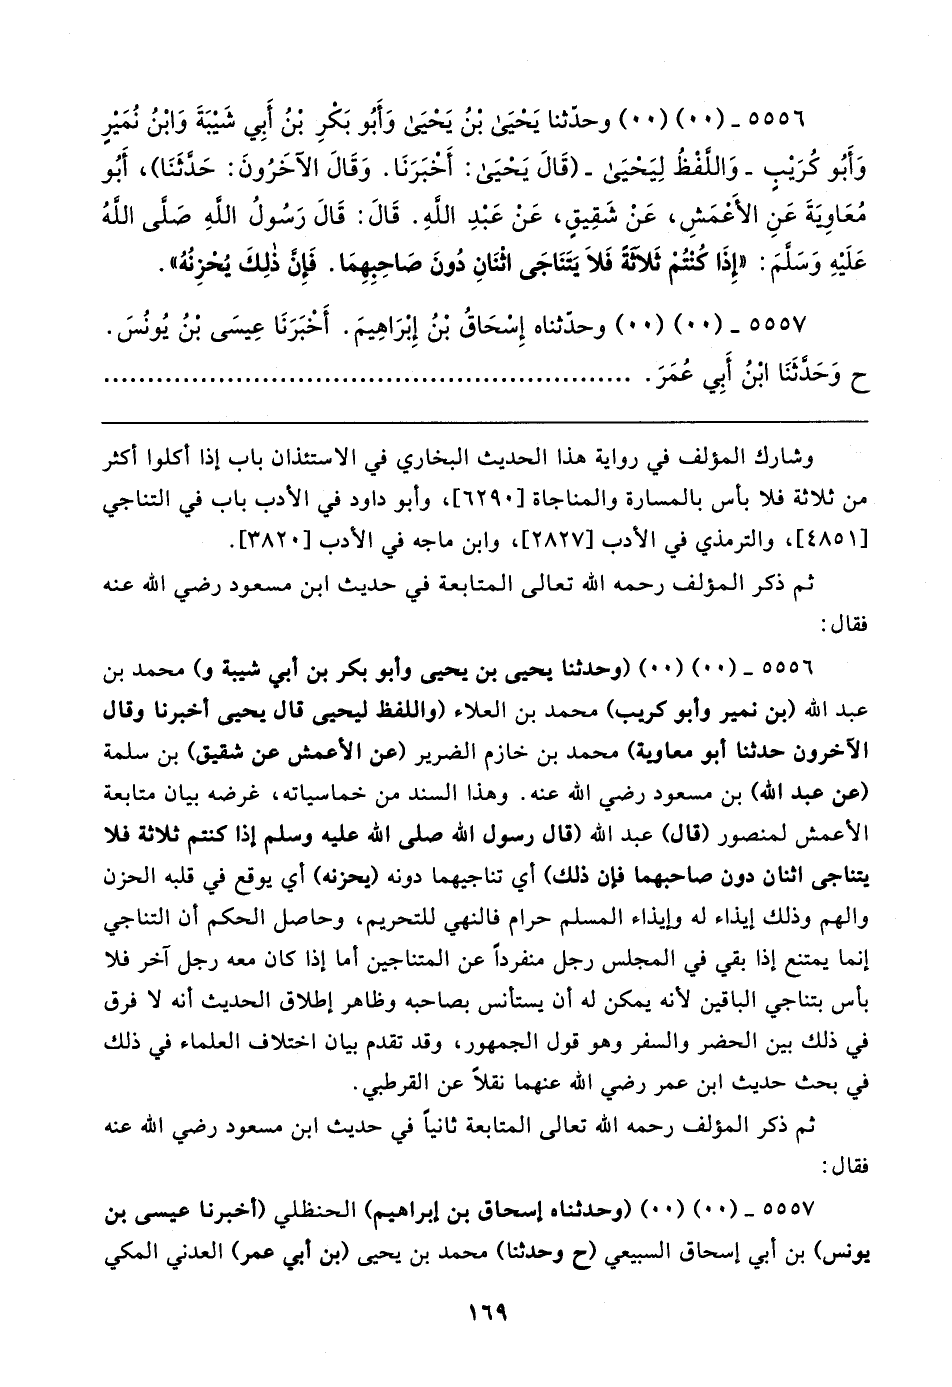 ٥٥٥٦ ـ (٠٠) (٠٠) وحدّثنا يَحْيَىٰ بْنُ يَحْيَىٰ وَأَبُو بَكْرِ بْنُ أَبِي شَيْبَةَ وَابْنُ نُمَيْرٍ
وَأَبُو كُرَيْبٍ ـ وَاللَّفْظُ لِيَحْيَىٰ ـ (قَالَ يَحْيَىٰ: أَخْبَرَنَا. وَقَالَ الآخَرُونَ: حَدَّثَنَا)، أَبُو
مُعَاوِيَةَ عَنِ الأَعْمَشِ، عَنْ شَقِيقٍ، عَنْ عَبْدِ اللَّهِ. قَالَ: قَالَ رَسُولُ اللَّهِ صَلَّى اللَّهُ
عَلَيْهِ وَسَلَّمَ: «إِذَا كُنْتُمْ ثَلاَثَةً فَلاَ يَتَنَاجَى اثْنَانِ دُونَ صَاحِبِهِمَا. فَإِنَّ ذٰلِكَ يُحْزِنُهُ».
٥٥٥٧ ـ (٠٠) (٠٠) وحدّثناه إِسْحَاقُ بْنُ إِبْرَاهِيمَ. أَخْبَرَنَا عِيسَى بْنُ يُونُسَ.
ح وَحَدَّثَنَا ابْنُ أَبِي عُمَرَ. ............................................................
وشارك المؤلف في رواية هذا الحديث البخاري في الاستئذان باب إذا أكلوا أكثر
من ثلاثة فلا بأس بالمسارة والمناجاة [٦٢٩٠]، وأبو داود في الأدب باب في التناجي
[٤٨٥١]، والترمذي في الأدب [٢٨٢٧]، وابن ماجه في الأدب [٣٨٢٠].
ثم ذكر المؤلف رحمه الله تعالى المتابعة في حديث ابن مسعود رضي الله عنه
فقال:
٥٥٥٦ ـ (٠٠) (٠٠) (وحدثنا يحيى بن يحيى وأبو بكر بن أبي شيبة و) محمد بن
عبد الله (بن نمير وأبو كريب) محمد بن العلاء (واللفظ ليحيى قال يحيى أخبرنا وقال
الآخرون حدثنا أبو معاوية) محمد بن خازم الضرير (عن الأعمش عن شقيق) بن سلمة
(عن عبد الله) بن مسعود رضي الله عنه. وهذا السند من خماسياته، غرضه بيان متابعة
الأعمش لمنصور (قال) عبد الله (قال رسول الله صلى الله عليه وسلم إذا كنتم ثلاثة فلا
يتناجى اثنان دون صاحبهما فإن ذلك) أي تناجيهما دونه (يحزنه) أي يوقع في قلبه الحزن
والهم وذلك إيذاء له وإيذاء المسلم حرام فالنهي للتحريم، وحاصل الحكم أن التناجي
إنما يمتنع إذا بقي في المجلس رجل منفرداً عن المتناجين أما إذا كان معه رجل آخر فلا
بأس بتناجي الباقين لأنه يمكن له أن يستأنس بصاحبه وظاهر إطلاق الحديث أنه لا فرق
في ذلك بين الحضر والسفر وهو قول الجمهور، وقد تقدم بيان اختلاف العلماء في ذلك
في بحث حديث ابن عمر رضي الله عنهما نقلاً عن القرطبي.
ثم ذكر المؤلف رحمه الله تعالى المتابعة ثانياً في حديث ابن مسعود رضي الله عنه
فقال:
٥٥٥٧ ـ (٠٠) (٠٠) (وحدثناه إسحاق بن إبراهيم) الحنظلي (أخبرنا عيسى بن
يونس) بن أبي إسحاق السبيعي (ح وحدثنا) محمد بن يحيى (بن أبي عمر) العدني المكي
١٦٩